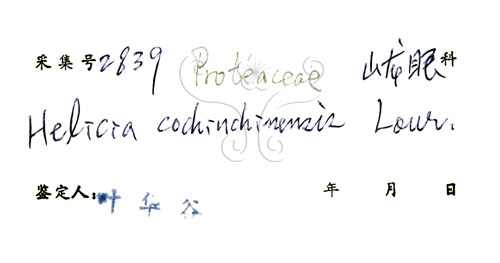 采集号 2839 Proteaceae 山龙眼科
Helicia cochinchinensis Lour.
鉴定人: 叶华谷 年 月 日